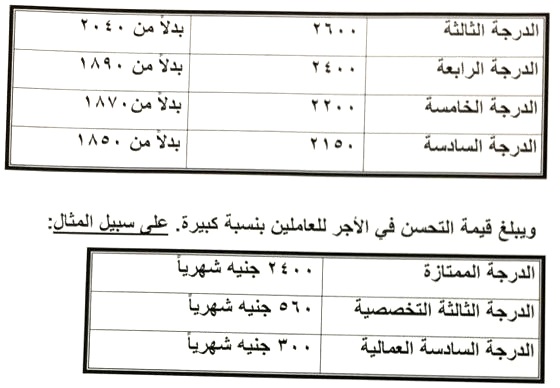 الدرجة الثالثة ٢٦٠٠ بدلاً من ٢٠٤٠
الدرجة الرابعة ٢٤٠٠ بدلاً من ١٨٩٠
الدرجة الخامسة ٢٢٠٠ بدلاً من ١٨٧٠
الدرجة السادسة ٢١٥٠ بدلاً من ١٨٥٠
ويبلغ قيمة التحسن في الأجر للعاملين بنسبة كبيرة. على سبيل المثال:
الدرجة الممتازة ٢٤٠٠ جنيه شهرياً
الدرجة الثالثة التخصصية ٥٦٠ جنيه شهرياً
الدرجة السادسة العمالية ٣٠٠ جنيه شهرياً